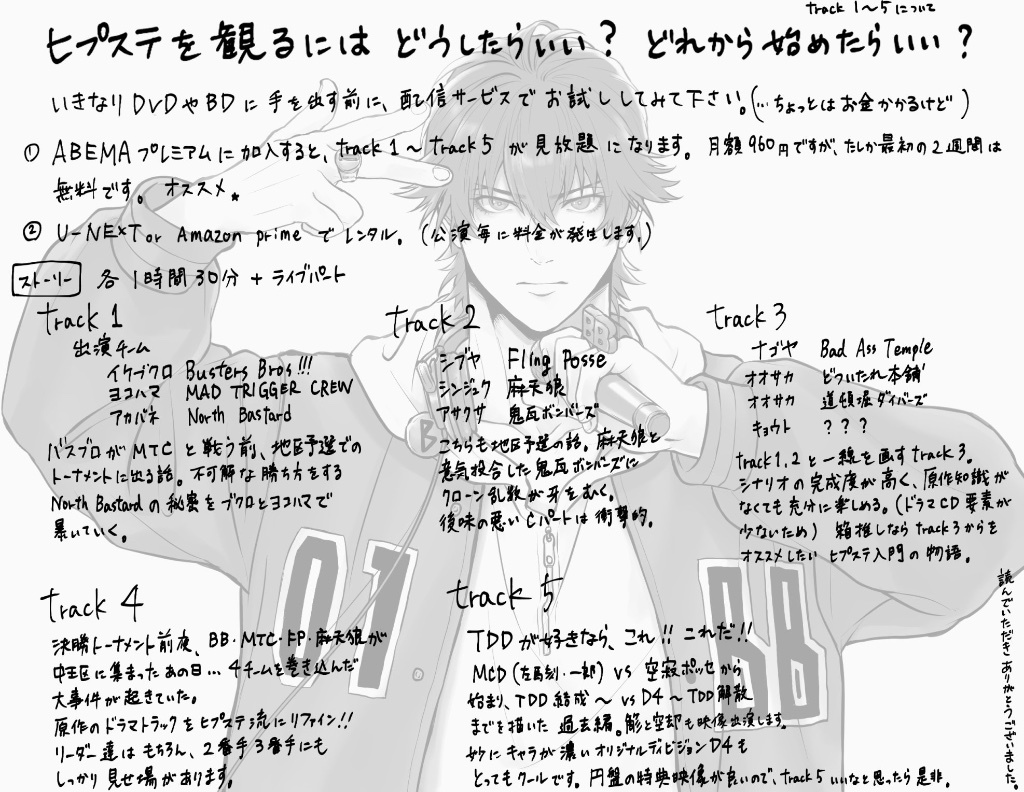 track 1〜5について
ヒプステを観るには どうしたらいい? どれから始めたらいい?
いきなりDVDやBDに手を出す前に、配信サービスでお試ししてみて下さい。(…ちょっとはお金かかるけど)
① ABEMAプレミアムに加入すると、track 1〜track 5 が見放題になります。月額960円ですが、たしか最初の2週間は
無料です。オススメ。
② U-NEXT or Amazon prime でレンタル。(公演毎に料金が発生します。)
ストーリー 各1時間30分 + ライブパート
track 1
出演チーム
イケブクロ Busters Bros!!!
ヨコハマ MAD TRIGGER CREW
アカバネ North Bastard
バスブロがMTCと戦う前、地区予選での
トーナメントに出る話。不可解な勝ち方をする
North Bastardの秘密をブクロとヨコハマで
暴いていく。
track 2
シブヤ Fling Posse
シンジュク 麻天狼
アサクサ 鬼瓦ボンバーズ
こちらも地区予選の話。麻天狼と
意気投合した鬼瓦ボンバーズに
クローン乱数が牙をむく。
後味の悪いCパートは衝撃的。
track 3
ナゴヤ Bad Ass Temple
オオサカ どついたれ本舗
オオサカ 道頓堀ダイバーズ
キョウト ???
track 1.2 と一線を画す track 3。
シナリオの完成度が高く、原作知識が
なくても充分に楽しめる。(ドラマCD要素が
少ないため) 箱推しなら track 3 からを
オススメしたい ヒプステ入門の物語。
track 4
決勝トーナメント前夜、BB・MTC・FP・麻天狼が
中王区に集まったあの日… 4チームを巻き込んだ
大事件が起きていた。
原作のドラマトラックをヒプステ流にリファイン!!
リーダー達はもちろん、2番手3番手にも
しっかり見せ場があります。
track 5
TDDが好きなら、これ!! これだ!!
MCD (左馬刻・一郎) vs 空寂ポッセから
始まり、TDD結成〜 vs D4 〜 TDD解散
までを描いた 過去編。簓と空却も映像出演します。
妙にキャラが濃いオリジナルディビジョンD4も
とってもクールです。円盤の特典映像が良いので、track 5 いいなと思ったら是非。
読んでいただきありがとうございました。
BB
B
01
BB